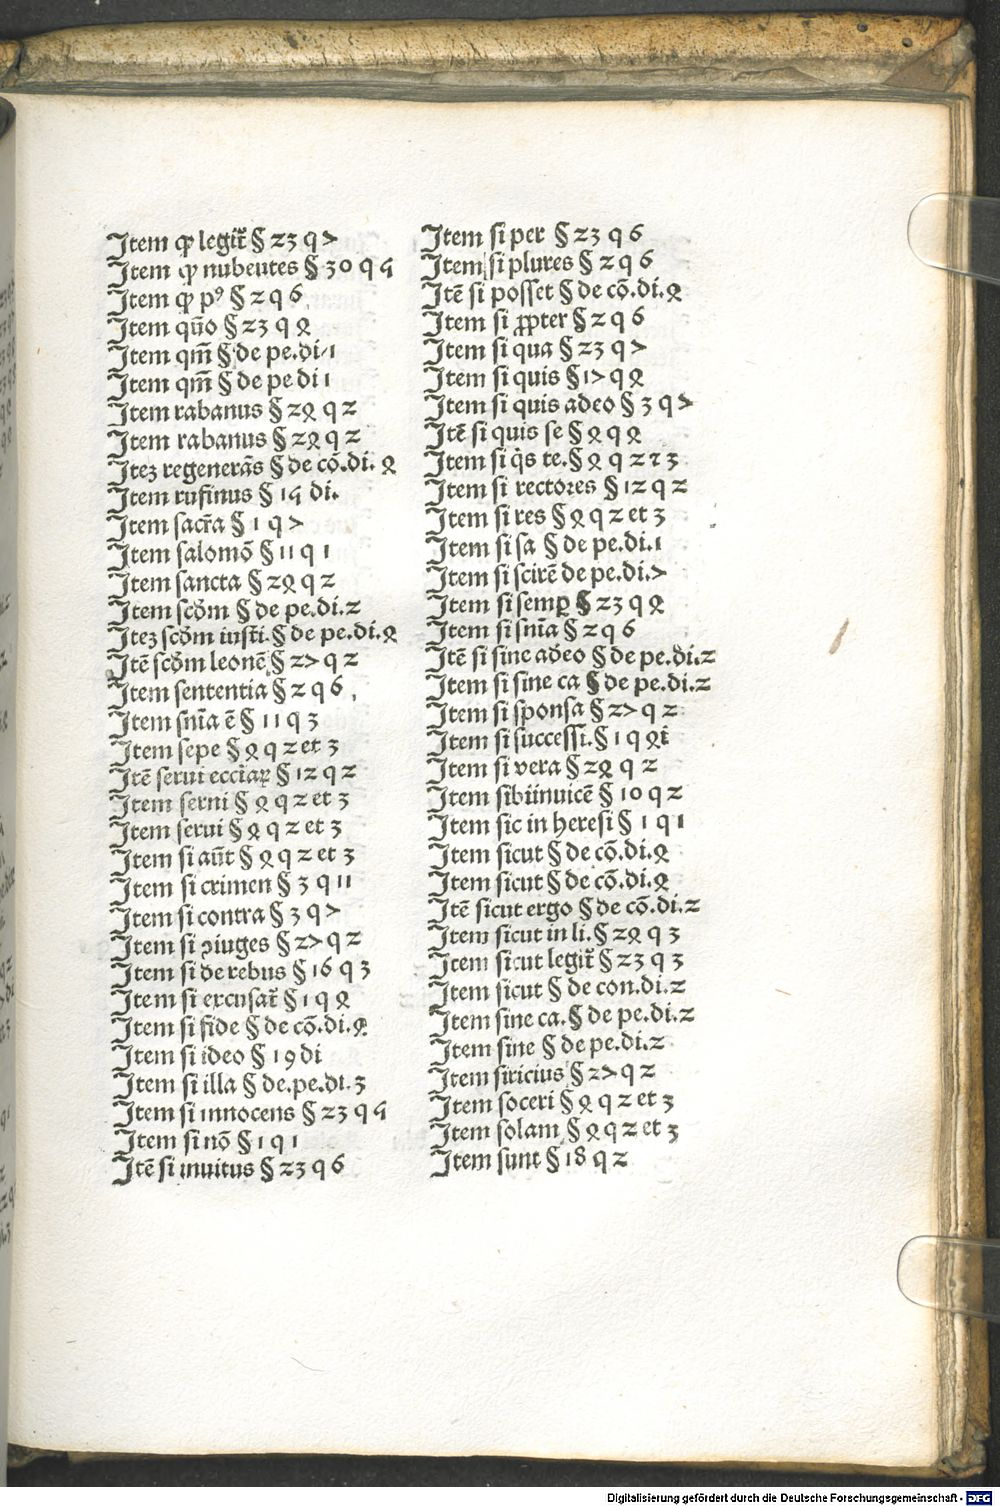 Item ꝙ legit̃ § 23 q 7
Item ꝙ nubentes § 30 q 4
Item ꝙ pꝰ § 2 q 6
Item qũo § 23 q 8
Item qm̃ § de pe.di.1
Item qm̃ § de pe di 1
Item rabanus § 28 q 2
Item rabanus § 28 q 2
Itez regenerãs § de cõ.di. 8
Item rufinus § 14 di.
Item sacr̃a § 1 q 7
Item salomõ § 11 q 1
Item sancta § 28 q 2
Item scd̃m § de pe.di.2
Itez scd̃m iusti § de pe.di.8
Itẽ scd̃m leonẽ § 27 q 2
Item sententia § 2 q 6
Item snĩa ẽ § 11 q 3
Item sepe § 8 q 2 et 3
Itẽ serui ecciaꝝ § 12 q 2
Item serni § 8 q 2 et 3
Item serui § 8 q 2 et 3
Item si aũt § 8 q 2 et 3
Item si crimen § 3 q 11
Item si contra § 3 q 7
Item si ꝯiuges § 27 q 2
Item si de rebus § 16 q 3
Item si excusat̃ § 1 q 8
Item si fide § de cõ.di.8
Item si ideo § 19 di
Item si illa § de.pe.di.3
Item si innocens § 23 q 4
Item si nõ § 1 q 1
Itẽ si inuitus § 23 q 6
Item si per § 23 q 6
Item si plures § 2 q 6
Itẽ si posset § de cõ.di.8
Item si ꝓpter § 2 q 6
Item si qua § 23 q 7
Item si quis § 17 q 8
Item si quis adeo § 3 q 7
Itẽ si quis se § 8 q 8
Item si q̃s te.§ 8 q 2 ⁊ 3
Item si rectores § 12 q 2
Item si res § 8 q 2 et 3
Item si sa § de pe.di.1
Item si scirẽ de pe.di.7
Item si semꝑ § 23 q 8
Item si snĩa § 2 q 6
Itẽ si sine adeo § de pe.di.2
Item si sine ca § de pe.di.2
Item si sponsa § 27 q 2
Item si successi.§ 1 q 8i
Item si vera § 28 q 2
Item sibiinuicẽ § 10 q 2
Item sic in heresi § 1 q 1
Item sicut § de cõ.di.8
Item sicut § de cõ.di.8
Itẽ sicut ergo § de cõ.di.2
Item sicut in li.§ 28 q 3
Item sicut legit̃ § 23 q 3
Item sicut § de con.di.2
Item sine ca.§ de pe.di.2
Item sine § de pe.di.2
Item siricius § 27 q 2
Item soceri § 8 q 2 et 3
Item solam § 8 q 2 et 3
Item sunt § 18 q 2
Digitalisierung gefördert durch die Deutsche Forschungsgemeinschaft - DFG